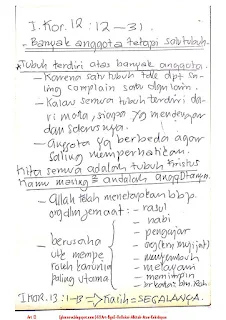 I.Kor.12:12-31.
- Banyak anggota tetapi satu tubuh
*Tubuh terdiri atas banyak anggota.
- Karena satu tubuh tdk dpt sa-
ling complain satu dgn lain.
- Kalau semua tubuh terdiri da-
ri mata, siapa yg mendengar
dan seterusnya.
- Anggota yg berbeda agar
saling memperhatikan.
Kita semua adalah tubuh Kristus
Kamu masing2 adalah anggotanya.
- Allah telah menetapkan bbrp.
org dlm jemaat: - rasul
- nabi
- pengajar
- menyembuh
- melayani
- memimpin
berusaha
utk mempe
roleh karunia
paling utama
I Kor. 13:1-13 → Kasih = SEGALANYA.